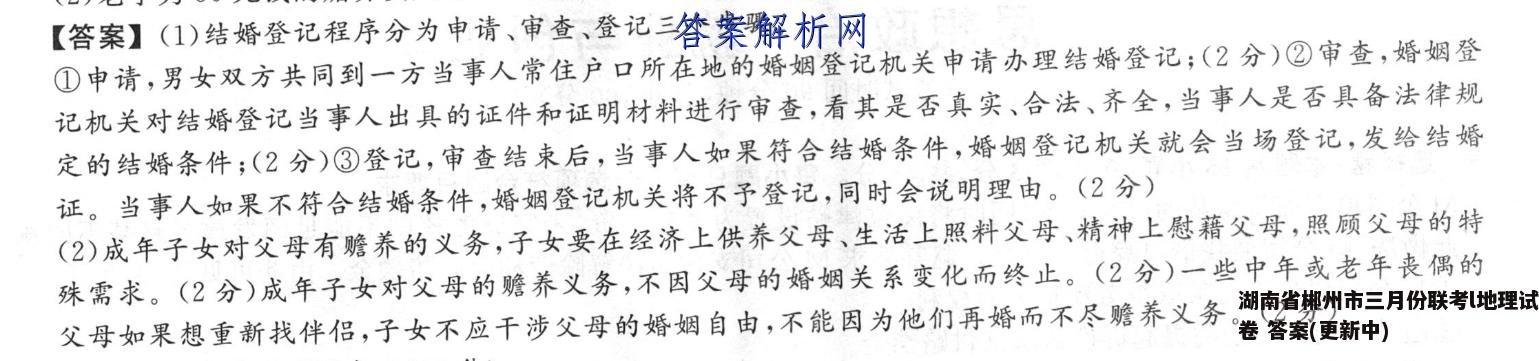 【答案】(1)结婚登记程序分为申请、审查、登记三个步骤
答案解析网
①申请,男女双方共同到一方当事人常住户口所在地的婚姻登记机关申请办理结婚登记;(2分)②审查,婚姻登
记机关对结婚登记当事人出具的证件和证明材料进行审查,看其是否真实、合法、齐全,当事人是否具备法律规
定的结婚条件;(2分)③登记,审查结束后,当事人如果符合结婚条件,婚姻登记机关就会当场登记,发给结婚
证。当事人如果不符合结婚条件,婚姻登记机关将不予登记,同时会说明理由。(2分)
(2)成年子女对父母有赡养的义务,子女要在经济上供养父母、生活上照料父母、精神上慰藉父母,照顾父母的特
殊需求。(2分)成年子女对父母的赡养义务,不因父母的婚姻关系变化而终止。(2分)一些中年或老年丧偶的
父母如果想重新找伴侣,子女不应干涉父母的婚姻自由,不能因为他们再婚而不尽赡养义务。(2分)
湖南省郴州市三月份联考l地理试
卷 答案(更新中)